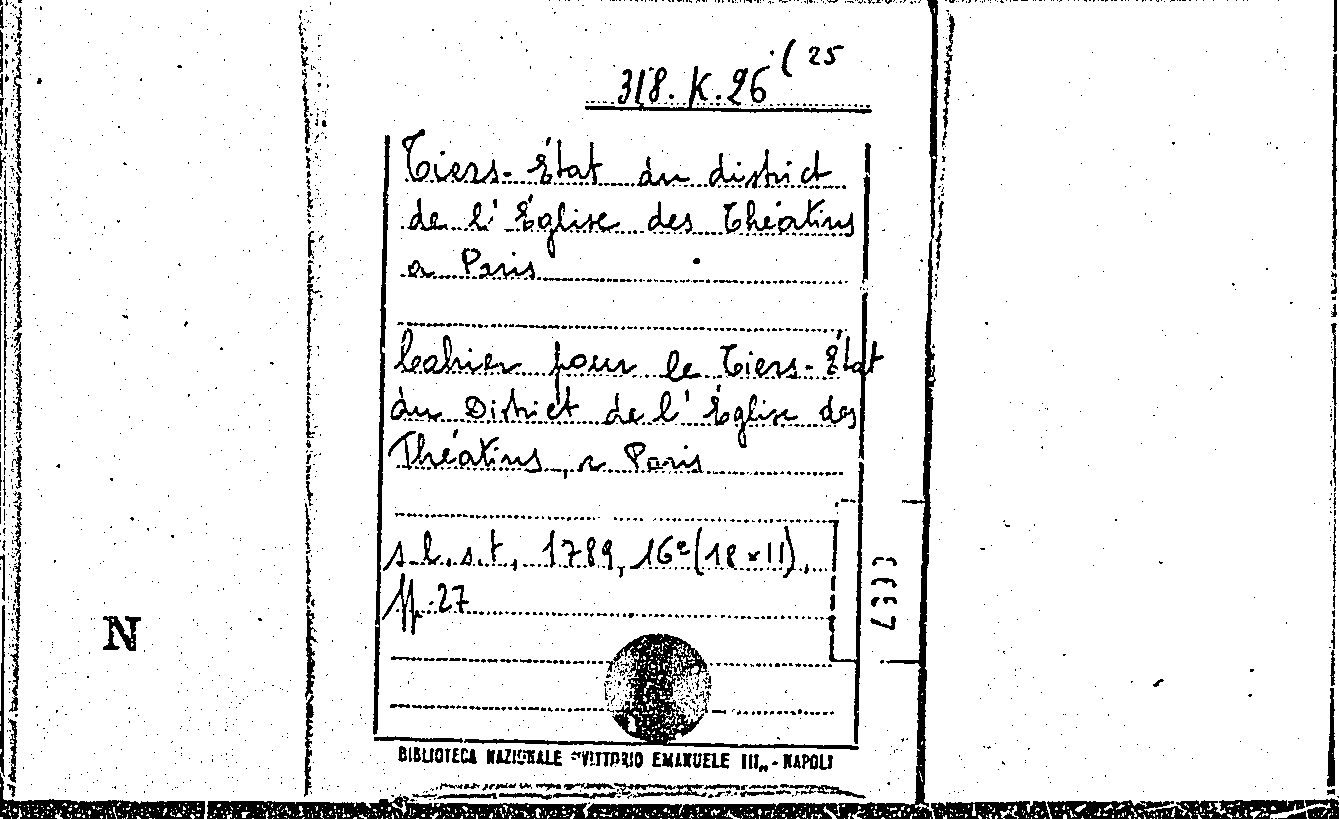 318. K. 26 (25
Tiers-État du district
de l'Église des Théatins
a Paris
Cahier pour le Tiers-État
du District de l'Église des
Théatins, a Paris
s.l., s.t., 1789, 16º (18 × 11),
pp. 27
N
BIBLIOTECA NAZIONALE "VITTORIO EMANUELE III„ - NAPOLI